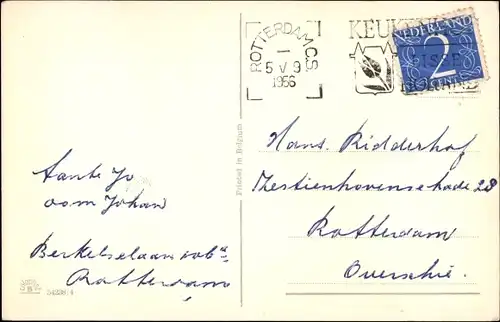 ROTTERDAM C.S
5 V 9
1956
KEUKEN
LISSE
HOLLAND
NEDERLAND
2
CENT
Printed in Belgium
tante Jo
oom Johan
Berkelselaan
Rotterdam
Hans Ridderhof
Zestienhovensekade 28
Rotterdam
Overschie.